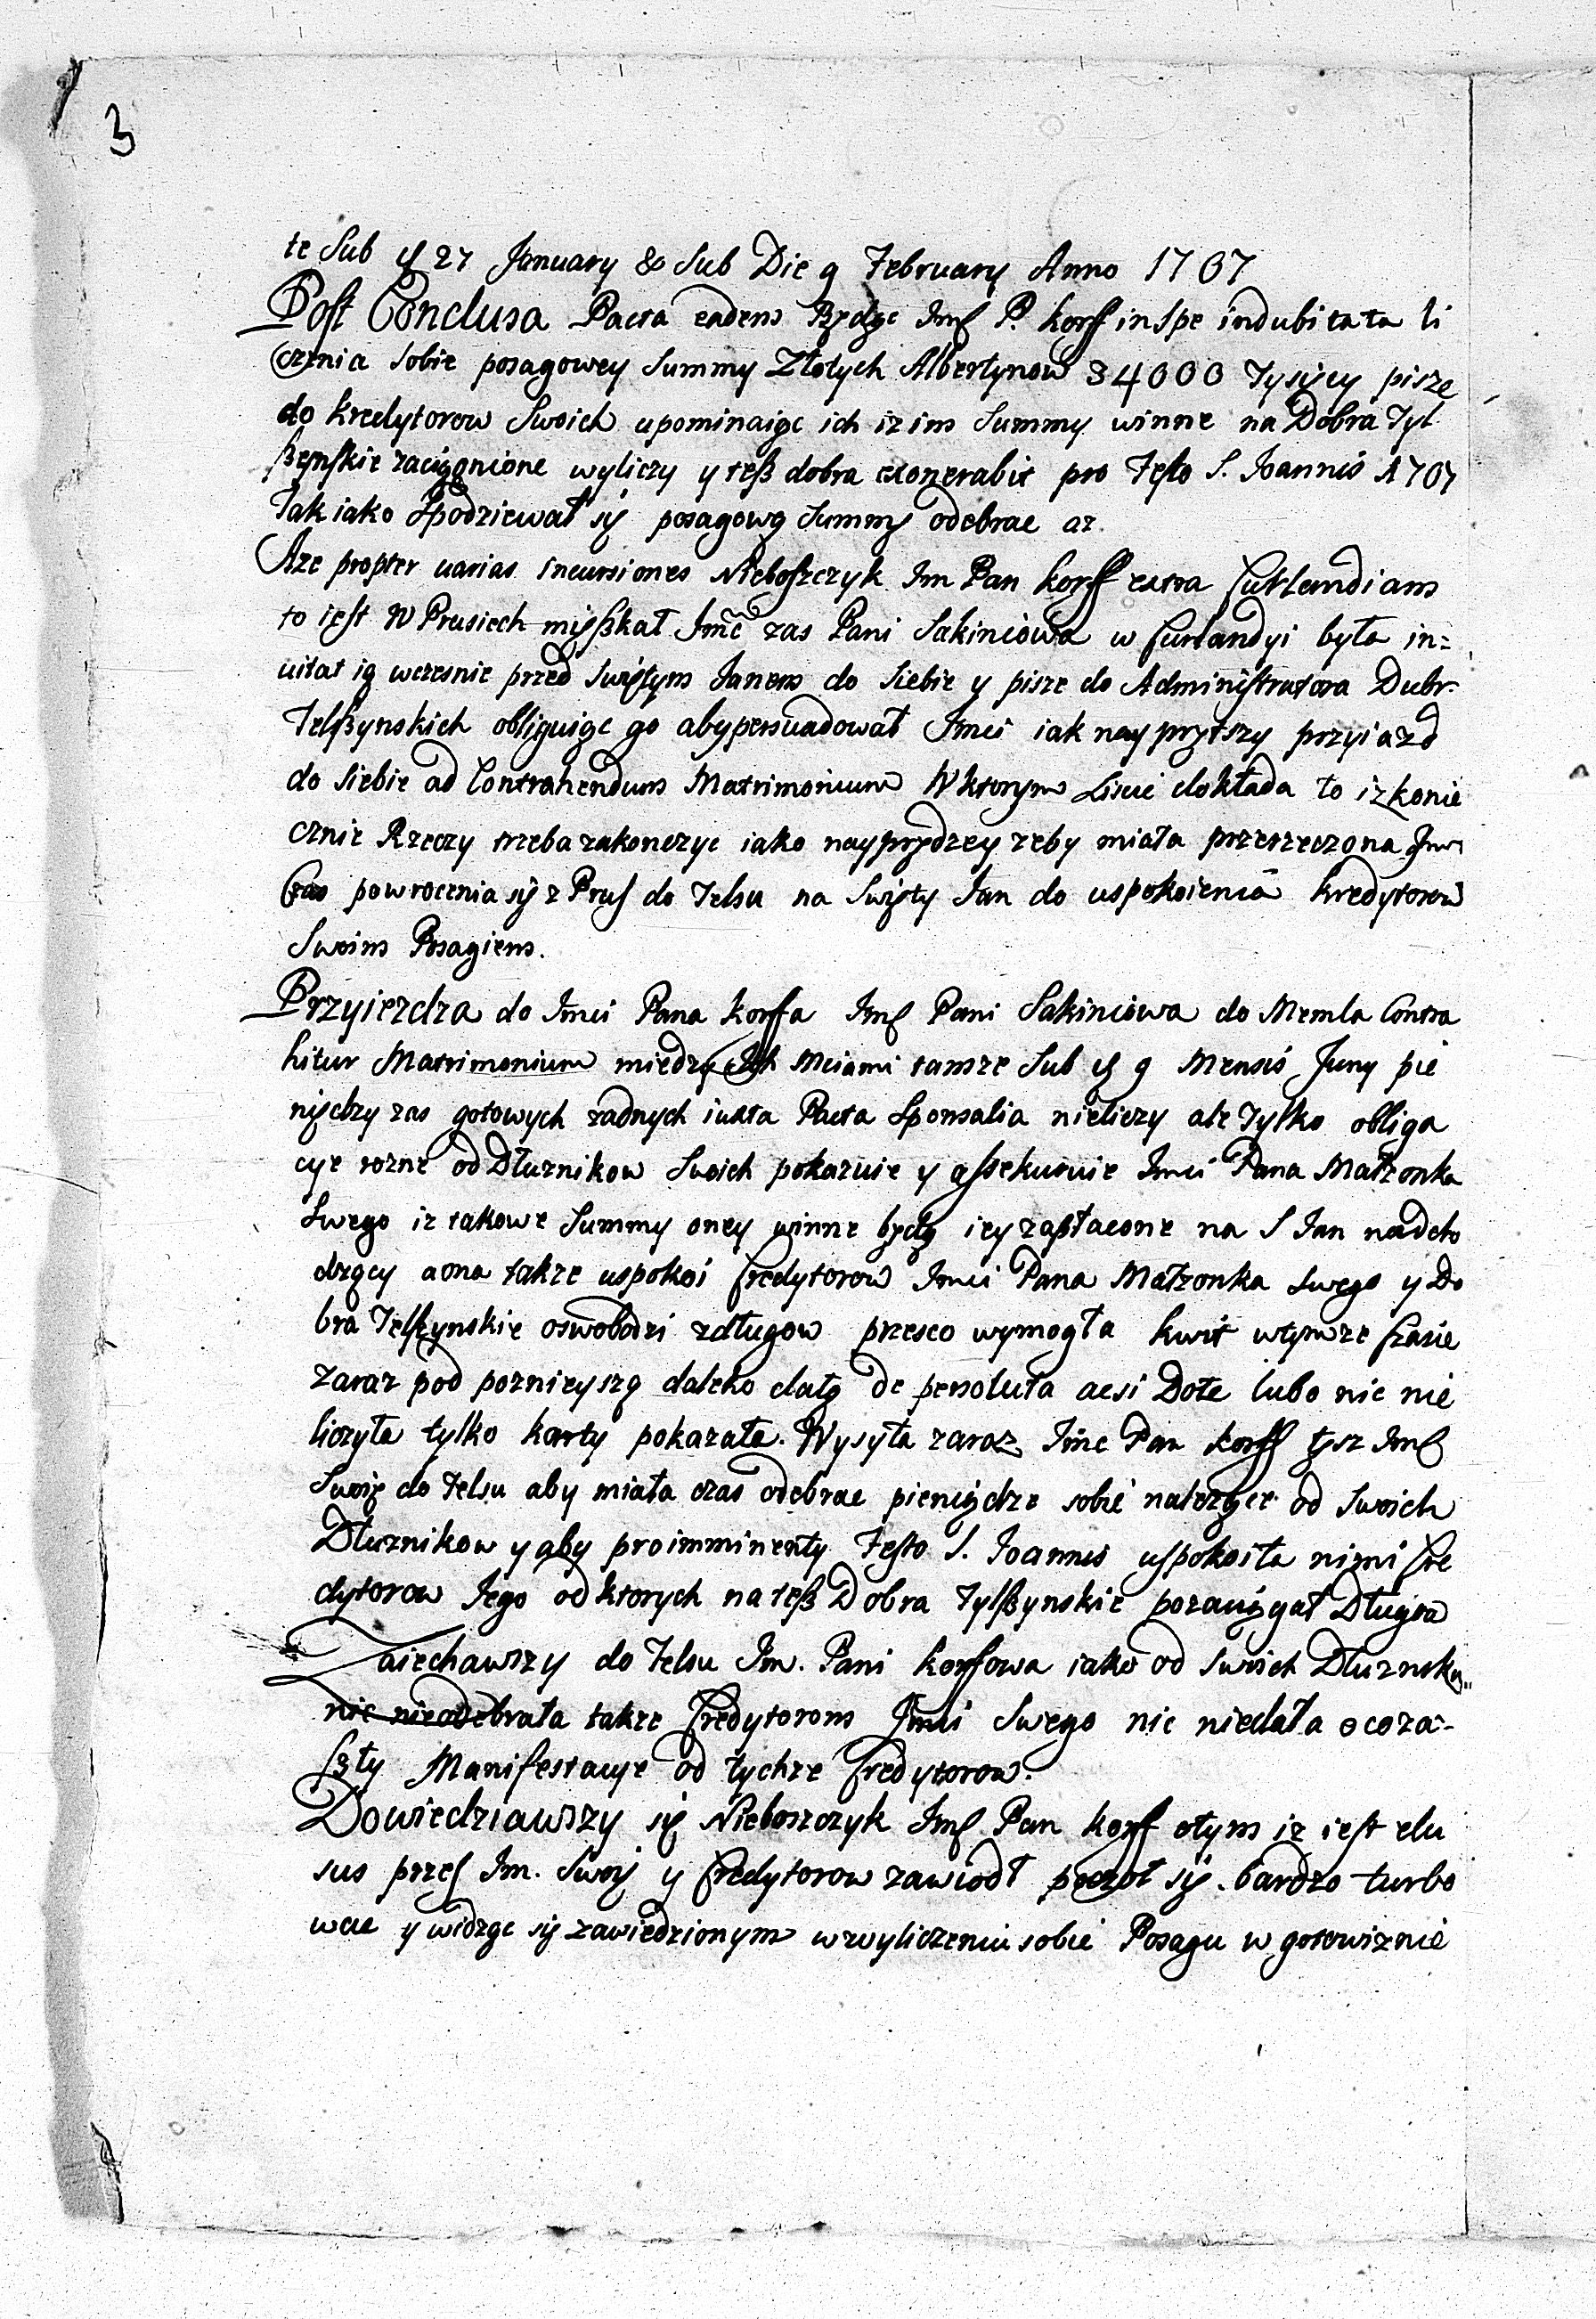 3
te Sub ẏ 27 January & Sub Die 9 February Anno 1707
Post Conclusa Pacta eadem Będąc Imſ P. Korff in Spe indubitata li
cżenia sobie posagowey Summy Złotych Albertynow 34000 Tysięcy pisze
do kredytorow Swoich upominaiąc ich iz im Summy winne na Dobra Tyl
ßenskie zaciągnione wyliczy y teß dobra exonerabit pro Festo S. Joannis A 707
Tak iako Spodziewał się posagową Summę odebrac az.
Aze propter uarias incursiones Nieboszczyk Im Pan Korff extra Curlandiam
to iest W Prusiech mięßkał Imć zas Pani Sakiniowa w Curlandyi była in=
uitat ią wczesnie przed Swiętym Janem do Siebie y pisze do Administratora Dobr.
Telßynskich obliguiąc go aby persuadował Imci iak nayprętszy przyiazd
do Siebie ad Contrahendum Matrimonium W ktorym Liscie dokłada to iz konie
cznie Rzeczy trzeba zakonczyc iako nayprędzey zeby miała przerzeczona Im
Czas powrocenia się z Prus do Telsu na Swięty Jan do uspokoienia Kredytorow
Swoim Posagiem.
Przyiezdza do Imci Pana Korffa Imſ Pani Sakiniowa do Memla Contra
hitur Matrimonium miedzy Ich Mciami tamze Sub ẏ 9 Mensis Juny pie
niędzy zas gotowych zadnych iuxta Pacta Sponsalia nieliczy ale Tylko obliga
cye rozne od Dłuznikow Swoich pokazuie y assekuruie Imci Pana Małzonka
Swego iz takowe Summy oney winne będą iey zapłacone na S Jan nadcho
dzący a ona takze uspokoi Credytorow Imci Pana Małzonka Swego y Do
bra Telszynskie oswobodzi z długow przesco wymogła kwit w tymze Czasie
Zaraz pod poznieyszą daleko datą de persoluta acsi Dote lubo nic nie
liczyła tylko karty pokazała. Wysyła zaraz Imc Pan Korff tęsz Imſ
Swoię do Telsu aby miała czas odebrac pieniądze sobie nalezące od Swoich
Dłuznikow y aby pro imminenty Festo S. Joannis uspokoiła nimi Cre
dytorow Jego od ktorych na teß Dobra Tylßynskie pozaciągał Długow
Zaiechawszy do Telsu Im. Pani Korfowa iako od Swoich Dłuznikow
nic nieodebrała takze Credytorom Imci Swego nic niedała o co za-
szły Manifestacye od tychze Credytorow.
Dowiedziawszy się Nieboszczyk Imſ Pan Korff o tym iz iest elu
sus przes Im. Swoię y Credytorow zawiodł począł się bardzo turbo
wac y widząc się zawiedzionym w wyliczeniu sobie Posagu w gotowiznie